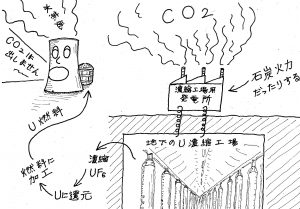 水蒸気
CO2は
出しません
CO2
濃縮工場用
発電所
石炭火力
だったりする
U燃料
地下のU濃縮工場
濃縮
UF6
燃料に
加工
Uに還元